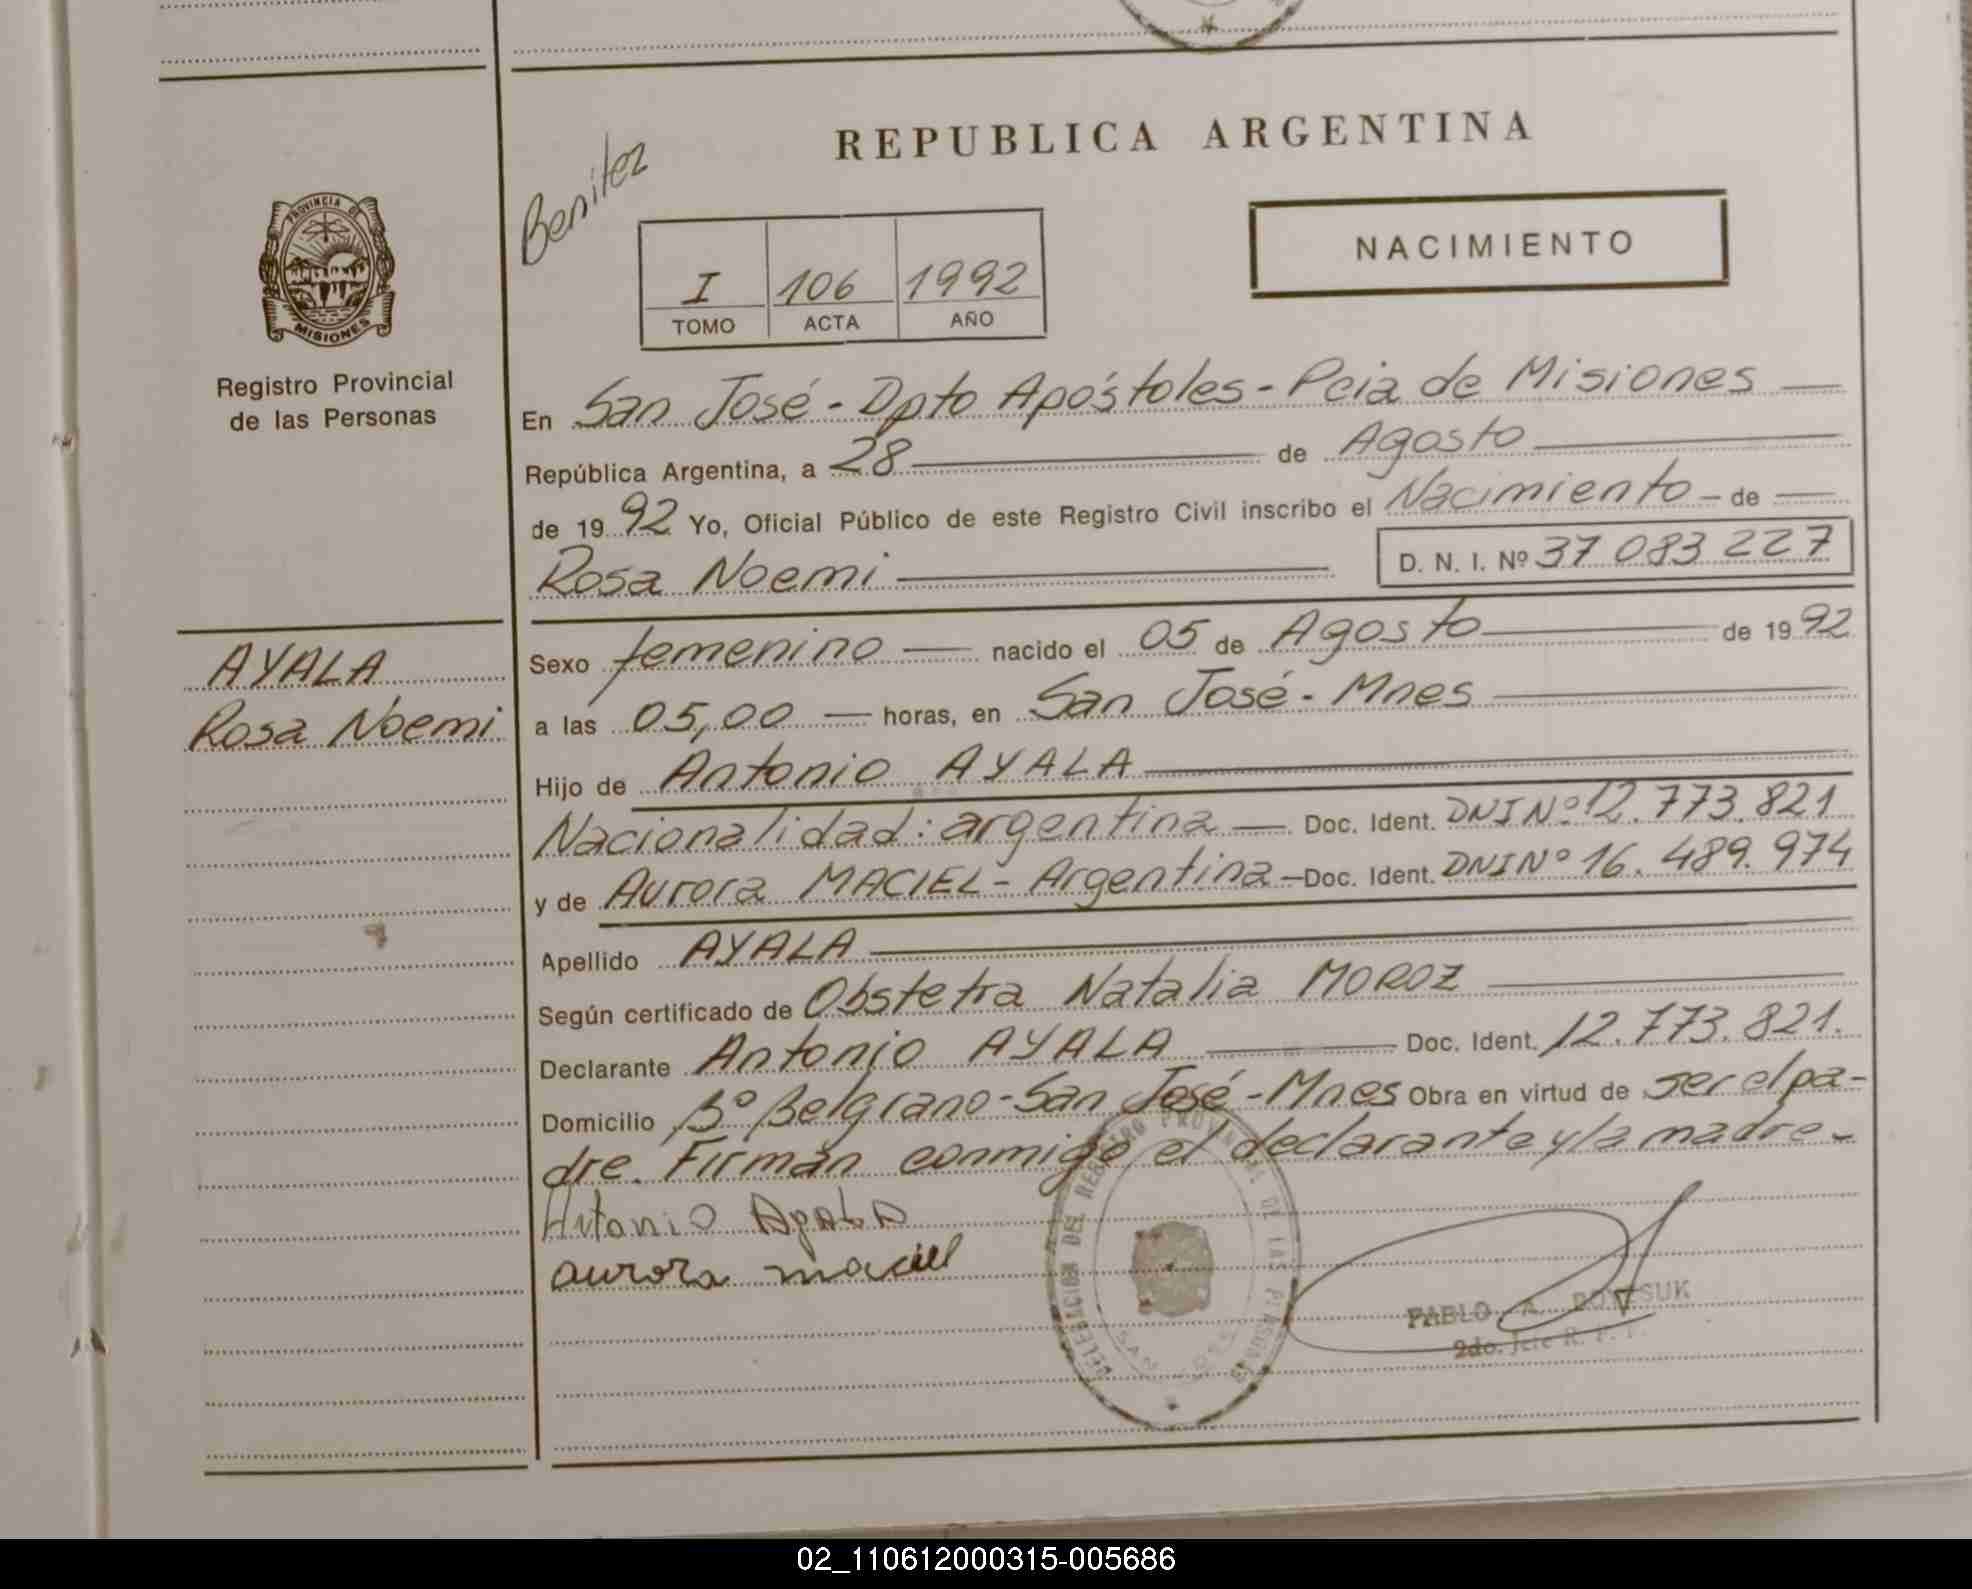 REPUBLICA ARGENTINA
Benitez
NACIMIENTO
I 106 1992
TOMO ACTA AÑO
PROVINCIA DE
MISIONES
Registro Provincial
de las Personas
AYALA
Rosa Noemi
En San José - Dpto Apóstoles - Pcia de Misiones
República Argentina, a 28 de Agosto
de 1992 Yo, Oficial Público de este Registro Civil inscribo el Nacimiento - de
Rosa Noemi D. N. I. Nº 37 083 227
Sexo femenino nacido el 05 de Agosto de 1992
a las 05,00 horas, en San José - Mnes
Hijo de Antonio AYALA
Nacionalidad: argentina Doc. Ident. DNI Nº 12.773.821
y de Aurora MACIEL - Argentina - Doc. Ident. DNI Nº 16.489.974
Apellido AYALA
Según certificado de Obstetra Natalia MOROZ
Declarante Antonio AYALA Doc. Ident. 12.773.821.
Domicilio Bº Belgrano - San José - Mnes Obra en virtud de ser el pa-
dre. Firman conmigo el declarante y la madre.
Antonio Ayala
aurora maciel
DELEGACION DEL REGISTRO PROVINCIAL DE LAS PERSONAS
SAN JOSE
PABLO A.
2do. Jefe R. P. P.
02_110612000315-005686